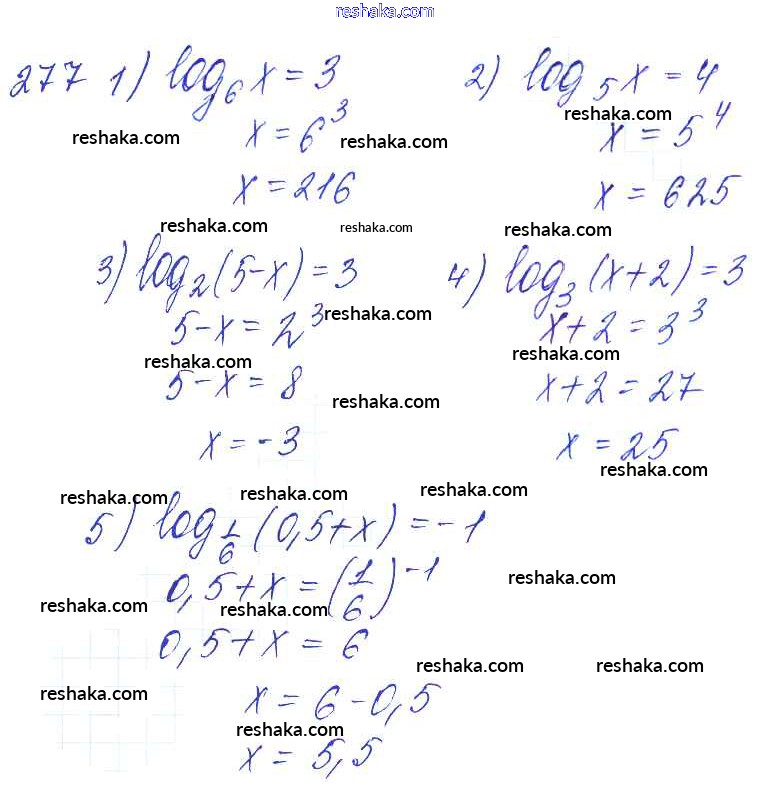 reshaka.com
277 1) log₆ x = 3
x = 6³
reshaka.com reshaka.com
x = 216
reshaka.com reshaka.com
2) log₅ x = 4
reshaka.com
x = 5⁴
x = 625
reshaka.com
3) log₂(5-x) = 3
5-x = 2³
reshaka.com
reshaka.com
5-x = 8
reshaka.com
x = -3
4) log₃(x+2) = 3
x+2 = 3³
reshaka.com
x+2 = 27
x = 25
reshaka.com
reshaka.com reshaka.com reshaka.com
5) log_{1/6}(0,5+x) = -1
0,5+x = (1/6)⁻¹
reshaka.com
reshaka.com reshaka.com
0,5+x = 6
reshaka.com reshaka.com
reshaka.com
x = 6-0,5
reshaka.com
x = 5,5